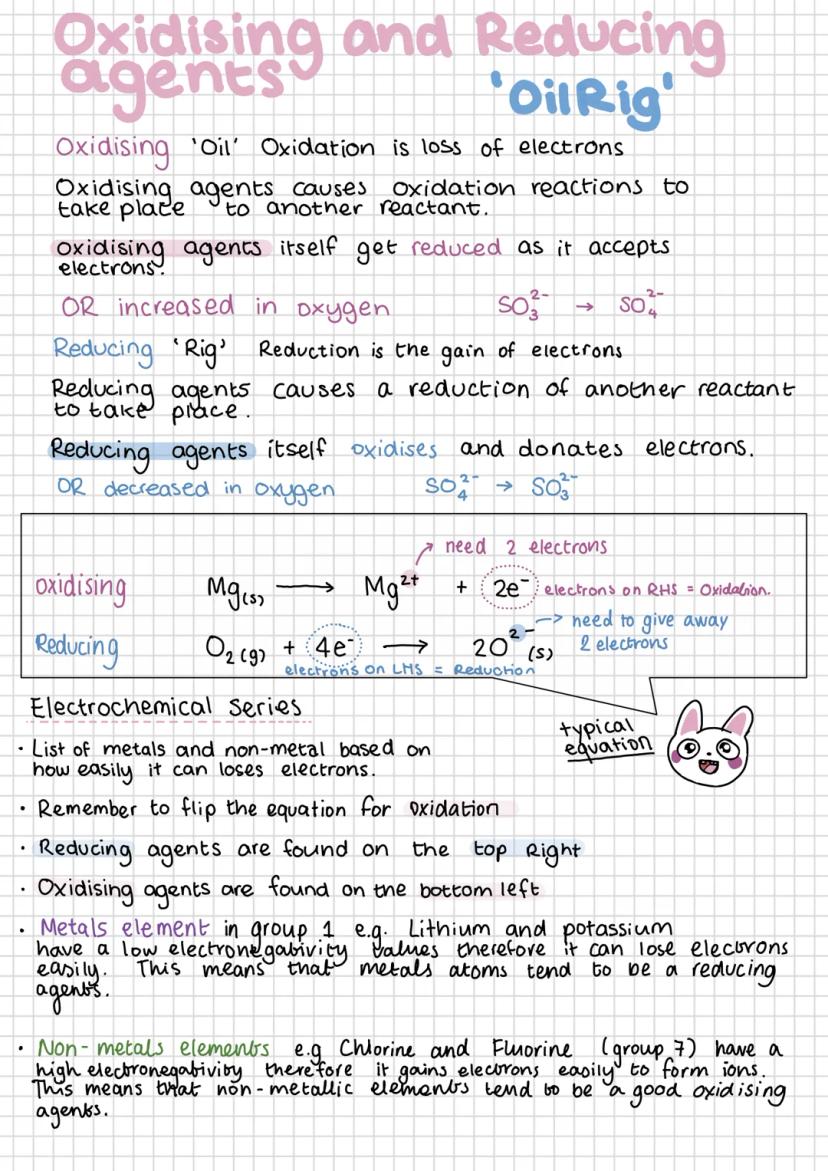 Oxidising and Reducing
agents 'OilRig'
Oxidising 'Oil' Oxidation is loss of electrons
Oxidising agents causes oxidation reactions to
take place to another reactant.
oxidising agents itself get reduced as it accepts
electrons.
OR increased in oxygen SO₃²⁻ → SO₄²⁻
Reducing 'Rig' Reduction is the gain of electrons
Reducing agents causes a reduction of another reactant
to take place.
Reducing agents itself oxidises and donates electrons.
OR decreased in oxygen SO₄²⁻ → SO₃²⁻
need 2 electrons
oxidising Mg(s) → Mg²⁺ + 2e⁻ electrons on RHS = Oxidation.
need to give away
2 electrons
Reducing O₂(g) + 4e⁻ → 2O²⁻(s)
electrons on LHS = Reduction
Electrochemical Series
typical
equation
· List of metals and non-metal based on
how easily it can loses electrons.
· Remember to flip the equation for oxidation
· Reducing agents are found on the top Right
· Oxidising agents are found on the bottom left
· Metals element in group 1 e.g. Lithium and potassium
have a low electronegativity values therefore it can lose electrons
easily. This means that metals atoms tend to be a reducing
agents.
· Non-metals elements e.g Chlorine and Fluorine (group 7) have a
high electronegativity therefore it gains electrons easily to form ions.
This means that non-metallic elements tend to be a good oxidising
agents.